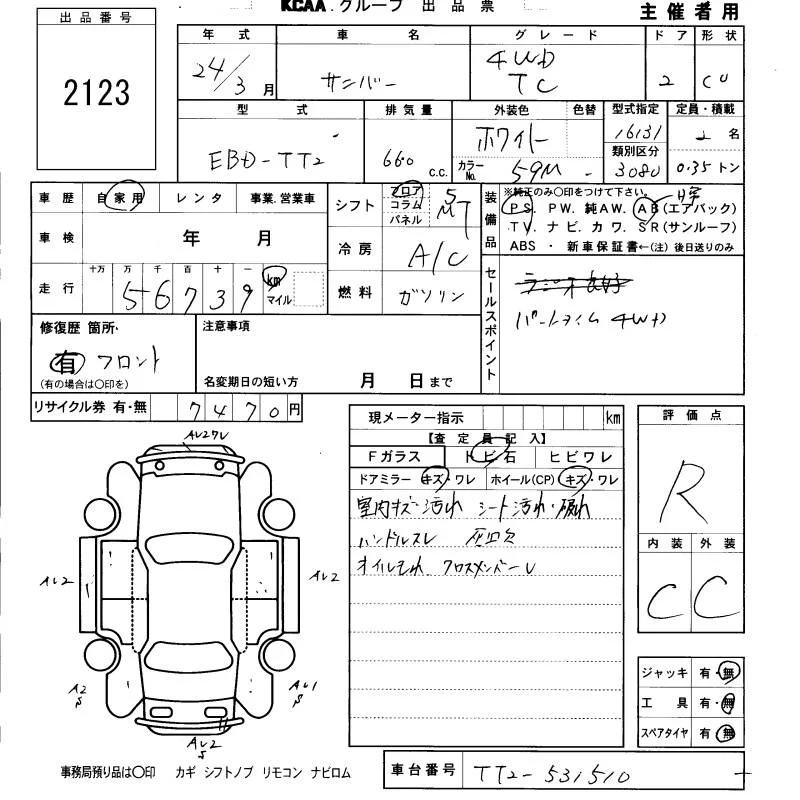 KCAA.グループ 出品票
主催者用
出品番号
2123
年式 車名 グレード ドア 形状
24/3月 サンバー 4WD TC 2 CU
型式 排気量 外装色 色替 型式指定 定員・積載
EBD-TT2 660 c.c. ホワイト 16131 2名
カラーNo. 59M 類別区分 3080 0.35トン
車歴 自家用 レンタ 事業.営業車
シフト フロア コラム パネル 5MT
装備品
※純正のみ〇印をつけて下さい。
PS. PW. 純AW. AB(エアバック)
TV. ナビ. カワ. SR(サンルーフ)
ABS ・ 新車保証書←(注) 後日送りのみ
車検 年 月
冷房 A/C
走行 十万 万 千 百 十 一
56739 km マイル
燃料 ガソリン
セールスポイント
パートタイム 4WD
修復歴 箇所.
有 フロント
(有の場合は〇印を)
注意事項
名変期日の短い方 月 日まで
リサイクル券 有・無 7470円
現メーター指示 km
【査定員記入】
Fガラス トビ石 ヒビワレ
ドアミラー キズ・ワレ ホイール(CP) キズ・ワレ
室内キズ・汚れ シート汚れ・破れ
ハンドルスレ 灰皿欠
オイルモレ クロスメンバーU
評価点
R
内装 外装
C C
AU2
AU2
A2
S
AU1
S
AU2
S
ジャッキ 有・無
工具 有・無
スペアタイヤ 有・無
事務局預り品は〇印 カギ シフトノブ リモコン ナビロム
車台番号 TT2-531510